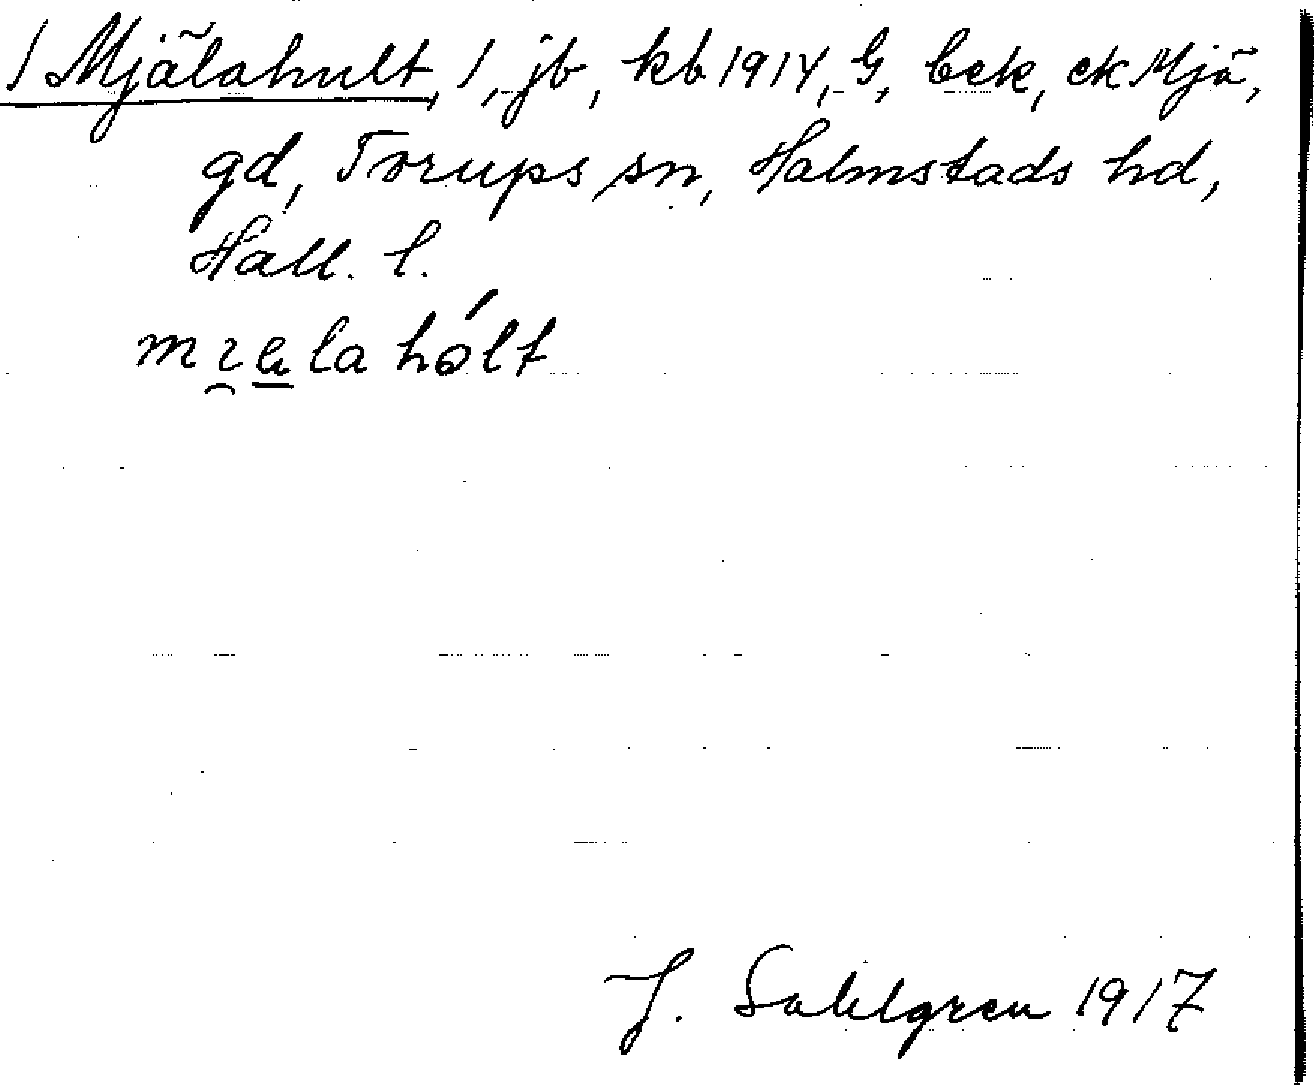 1 Mjälahult, 1, jb, kb 1914, G, bek, ek Mjä,
gd, Torups sn, Halmstads hd,
Hall. l.
mı̯a̲la hólt
J. Sahlgren 1917